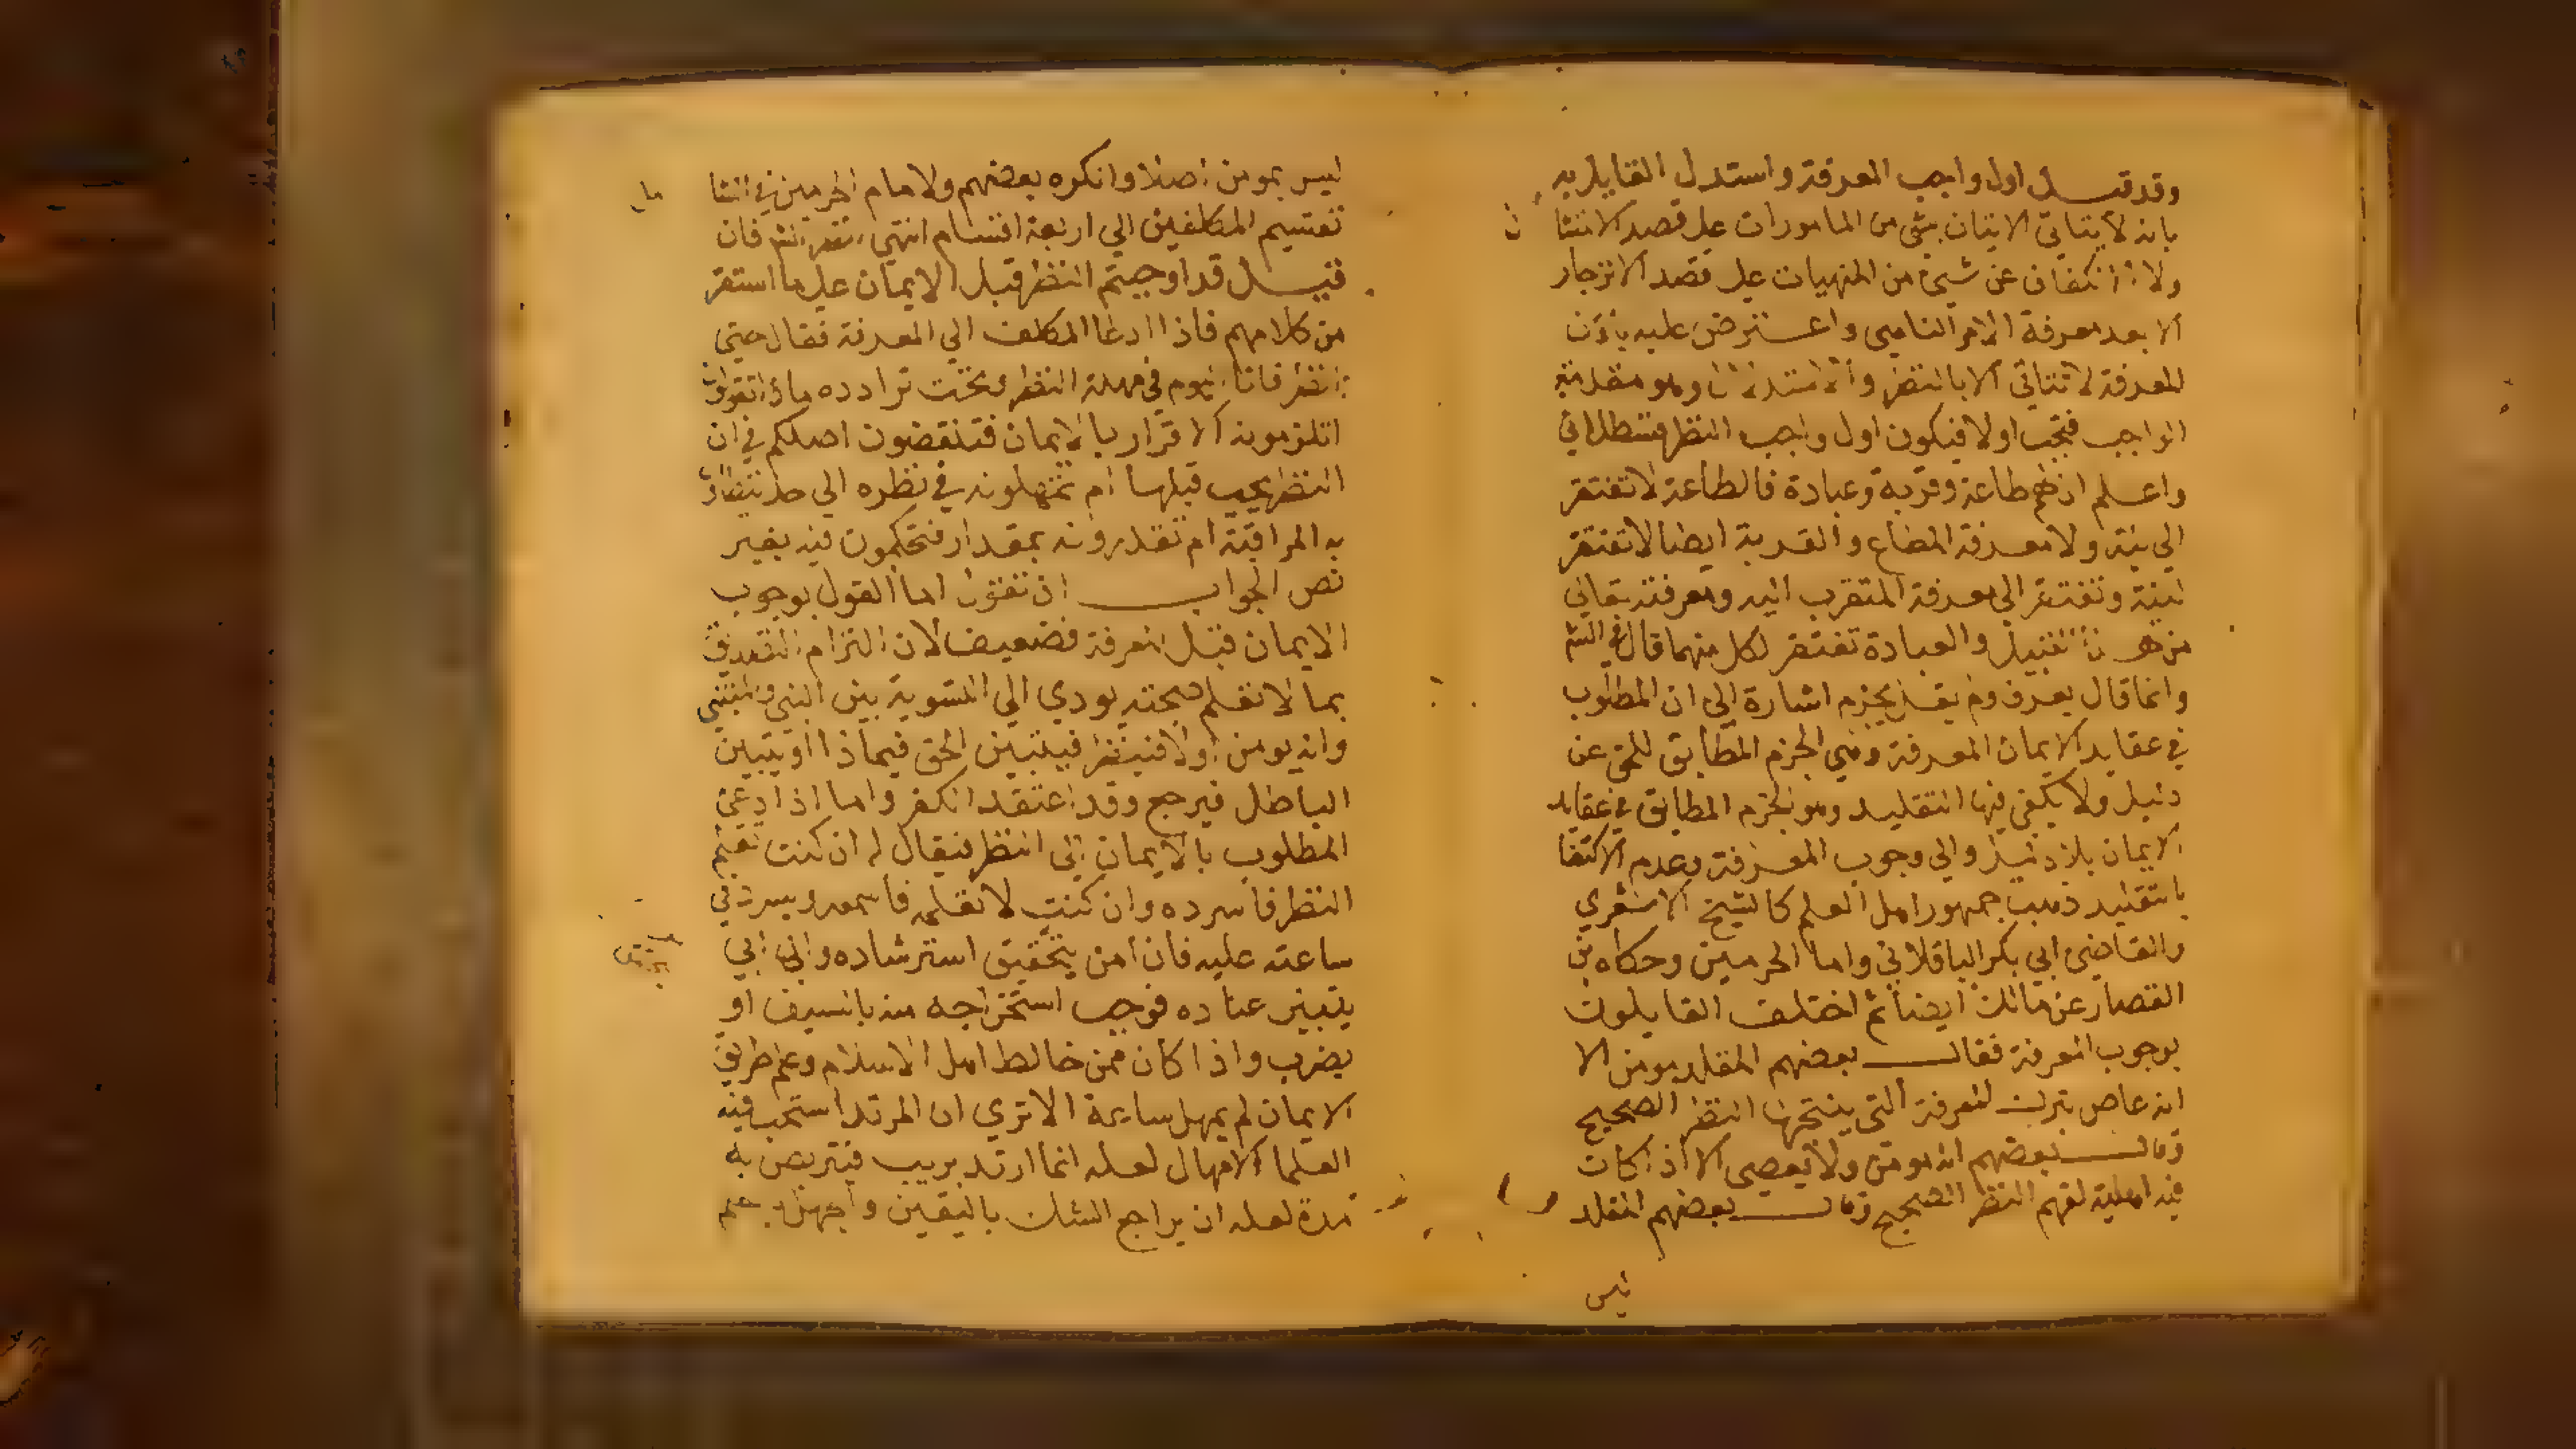 وقد قيل اول واجب المعرفة واستدل القايل به
بانه لا يتاتي الاتيان بشي من المامورات علي قصد الامتثا
ولا الانكفاف عن شيئ من المنهيات علي قصد الانزجار
الا بعد معرفة الامر الناهي واعترض عليه بان
المعرفة لا تتاتي الا بالنظر والاستدلال وهو مقدمة
الواجب فيجب اولا فيكون اول واجب النظر
واعلم ان لهم طاعة وقربة وعبادة فالطاعة لا تفتقر
الي نية ولا معرفة المطاع والقربة ايضا لا تفتقر
لنية وتفتقر الي معرفة المتقرب اليه ومعرفته تعالي
من هو القبيل والعبادة تفتقر لكل منهما قال في الش
وانما قال يعرف ولم يقل يجزم اشارة الي ان المطلوب
في عقايد الايمان المعرفة وهي الجزم المطابق للحق عن
دليل ولا يكفي فيها التقليد وهو الجزم المطابق في عقايد
الايمان بلا دليل والي وجوب المعرفة وعدم الاكتفا
بالتقليد ذهب جمهور اهل العلم كالشيخ الاشعري
والقاضي ابي بكر الباقلاني وامام الحرمين وحكاه بن
القصار عن مالك ايضا ثم اختلف القايلون
بوجوب المعرفة فقال بعضهم المقلد مومن الا
انه عاص بترك المعرفة التي ينتجها النظر الصحيح
وقال بعضهم انه مومن ولا يعصي الا اذا كان
فيه اهلية لفهم النظر الصحيح وقال بعضهم المقلد
ليس
ليس بمومن اصلا وانكره بعضهم ولامام الحرمين في الشا
تقسيم المكلفين الي اربعة اقسام انتهي فان
قيل قد اوجبتم النظر قبل الايمان علي ما استقر
من كلامهم فاذا ادعا المكلف الي المعرفة فقال حتي
انظر فانا اليوم في مهلة النظر وتحت ترادده ماذا تقولون
اتلزمونه الاقرار بالايمان فتنقضون اصلكم في ان
النظر يجب قبلها ام تمهلونه في نظره الي حد
به المراقبة ام تقدرونه بمقدار فتحكمون فيه بغير
نص الجواب ان نقول اما القول بوجوب
الايمان قبل المعرفة فضعيف لان التزام التصديق
بما لا تعلم صحته يودي الي التسوية بين النبي والمتنبي
وانه يومن اولا فينظر فيتبين الحق فيتمادا او يتبين
الباطل فيرجع وقد اعتقد الكفر واما اذا دعي
المطلوب بالايمان الي النظر فيقال له ان كنت تعلم
النظر فاسرده وان كنت لا تعلمه فاسمعه ويسرد في
ساعته عليه فان امن تحقيق استرشاده وان ابي
يتبين عناده فوجب استخراجه منه بالسيف او
يضرب واذا كان ممن خالط اهل الاسلام وعلم طريق
الايمان لم يمهل ساعة الا تري ان المرتد استحب فيه
العلما الامهال لعله انما ارتد بريب فيتربص به
مدة لعله ان يراجع الشك باليقين والجهل بالعلم